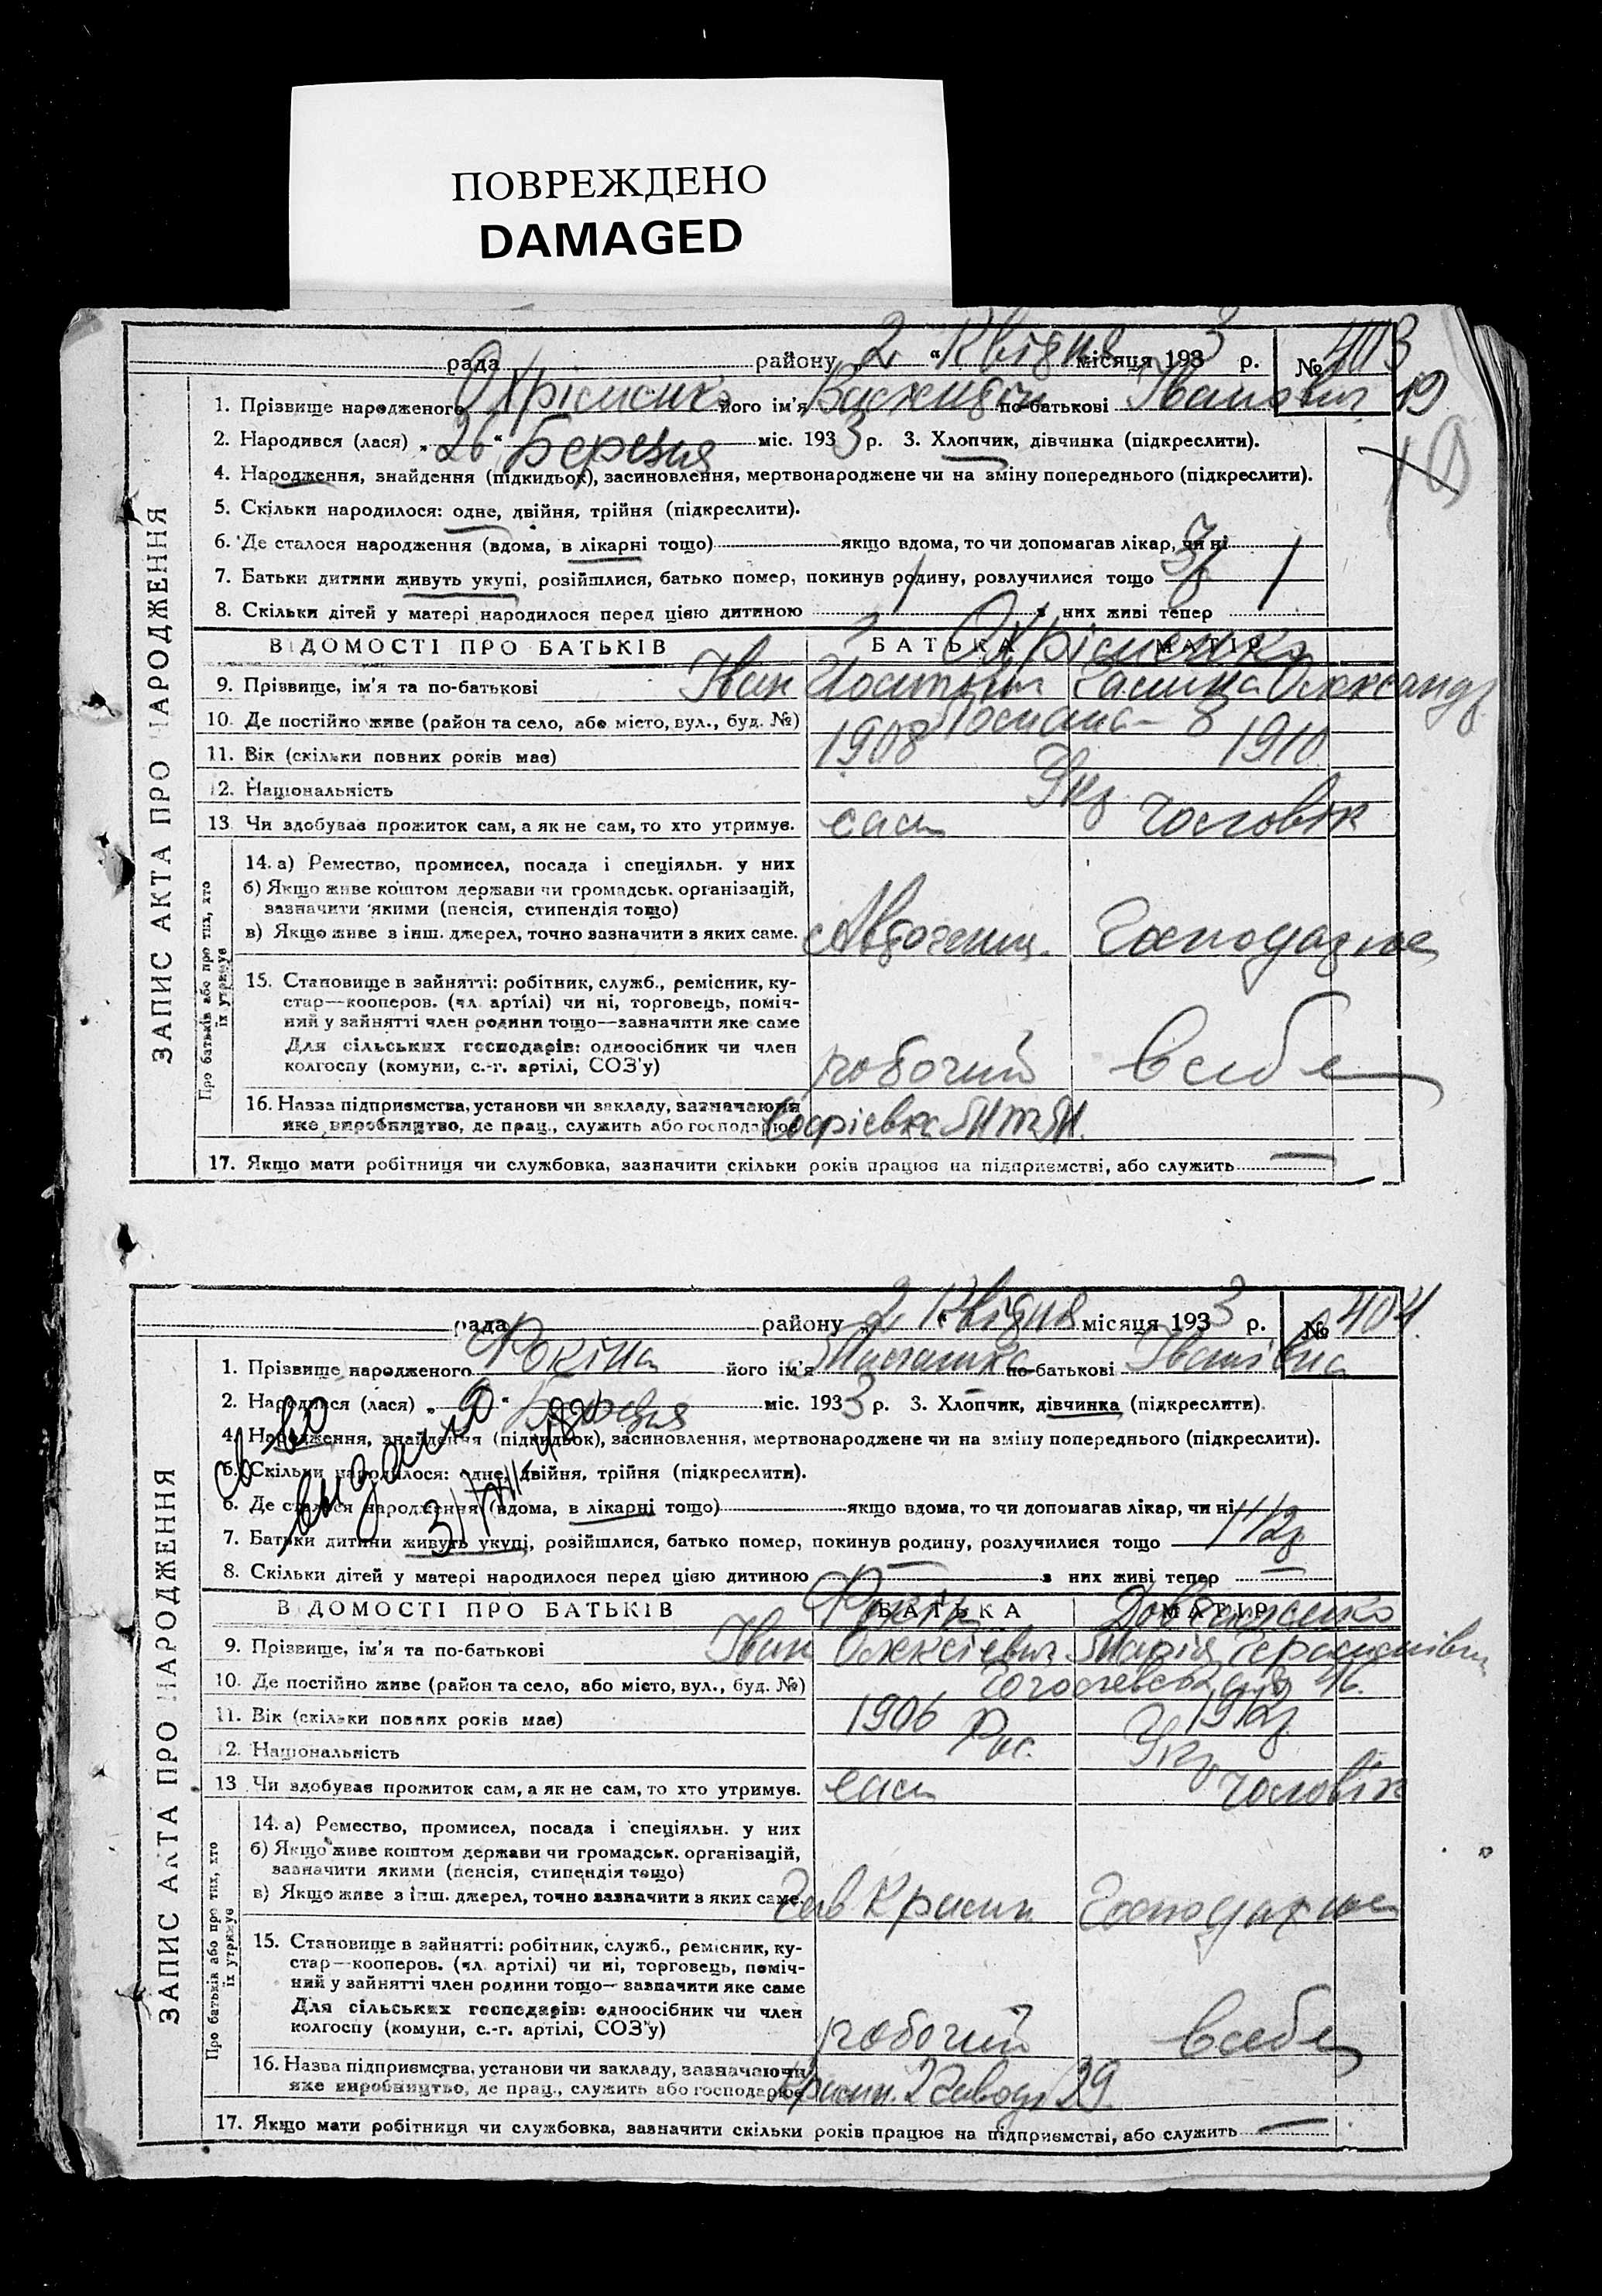 ПОВРЕЖДЕНО
DAMAGED
рада району „ 2 “ Квітня місяця 1933 р. № 403
1. Прізвище народженого Охріменко його ім'я по-батькові Іванович 19
2. Народився (лася) „ 26 “ Березня міс. 1933 р. 3. Хлопчик, дівчинка (підкреслити).
4. Народження, знайдення (підкидьок), засиновлення, мертвонароджене чи на зміну попереднього (підкреслити).
5. Скільки народилося: одне, двійня, трійня (підкреслити).
6. Де сталося народження (вдома, в лікарні тощо) якщо вдома, то чи допомагав лікар, чи ні
7. Батьки дитини живуть укупі, розійшлися, батько помер, покинув родину, розлучилися тощо 3/
8. Скільки дітей у матері народилося перед цією дитиною з них живі тепер
ЗАПИС АКТА ПРО НАРОДЖЕННЯ
ВІДОМОСТІ ПРО БАТЬКІВ БАТЬКА МАТІР
Охріменко
9. Прізвище, ім'я та по-батькові Іван Галина Олександр
10. Де постійно живе (район та село, або місто, вул., буд. №)
11. Вік (скільки повних років має) 1908 1910
12. Національність Укр
13 Чи здобуває прожиток сам, а як не сам, то хто утримує. сам Чоловік
Про батьків або про тих, хто їх утримує
14. а) Ремество, промисел, посада і спеціяльн. у них
б) Якщо живе коштом держави чи громадськ. організацій,
зазначити якими (пенсія, стипендія тощо)
в) Якщо живе з інш. джерел, точно зазначити з яких саме. Господарює
15. Становище в зайнятті: робітник, служб., ремісник, ку-
стар—кооперов. (чл. артілі) чи ні, торговець, поміч-
ний у зайнятті член родини тощо—зазначити яке саме
Для сільських господарів: одноосібник чи член
колгоспу (комуни, с.-г. артілі, СОЗ'у) робочий в себе
16. Назва підприємства, установи чи закладу, зазначаючи
яке виробництво, де прац., служить або господарює
17. Якщо мати робітниця чи службовка, зазначити скільки років працює на підприємстві, або служить —
рада району „ 2 “ Квітня місяця 1933 р. № 404
1. Прізвище народженого Фокіна його ім'я по-батькові Іванівна
2. Народився (лася) „ 9 “ Березня міс. 1933 р. 3. Хлопчик, дівчинка (підкреслити).
4. Народження, знайдення (підкидьок), засиновлення, мертвонароджене чи на зміну попереднього (підкреслити).
5. Скільки народилося: одне, двійня, трійня (підкреслити).
6. Де сталося народження (вдома, в лікарні тощо) якщо вдома, то чи допомагав лікар, чи ні
7. Батьки дитини живуть укупі, розійшлися, батько помер, покинув родину, розлучилися тощо
8. Скільки дітей у матері народилося перед цією дитиною — з них живі тепер —
св во выдано
ЗАПИС АКТА ПРО НАРОДЖЕННЯ
ВІДОМОСТІ ПРО БАТЬКІВ БАТЬКА МАТІР
Фокін Довгаженко
9. Прізвище, ім'я та по-батькові Іван Олексієвич Марія Герасимівна
10. Де постійно живе (район та село, або місто, вул., буд. №)
11. Вік (скільки повних років має) 1906 1912
12. Національність Рос. Укр
13 Чи здобуває прожиток сам, а як не сам, то хто утримує. сам чоловік
Про батьків або про тих, хто їх утримує
14. а) Ремество, промисел, посада і спеціяльн. у них
б) Якщо живе коштом держави чи громадськ. організацій,
зазначити якими (пенсія, стипендія тощо)
в) Якщо живе з інш. джерел, точно зазначити з яких саме. Господарює
15. Становище в зайнятті: робітник, служб., ремісник, ку-
стар—кооперов. (чл. артілі) чи ні, торговець, поміч-
ний у зайнятті член родини тощо—зазначити яке саме
Для сільських господарів: одноосібник чи член
колгоспу (комуни, с.-г. артілі, СОЗ'у) робочий в себе
16. Назва підприємства, установи чи закладу, зазначаючи
яке виробництво, де прац., служить або господарює 29
17. Якщо мати робітниця чи службовка, зазначити скільки років працює на підприємстві, або служить —